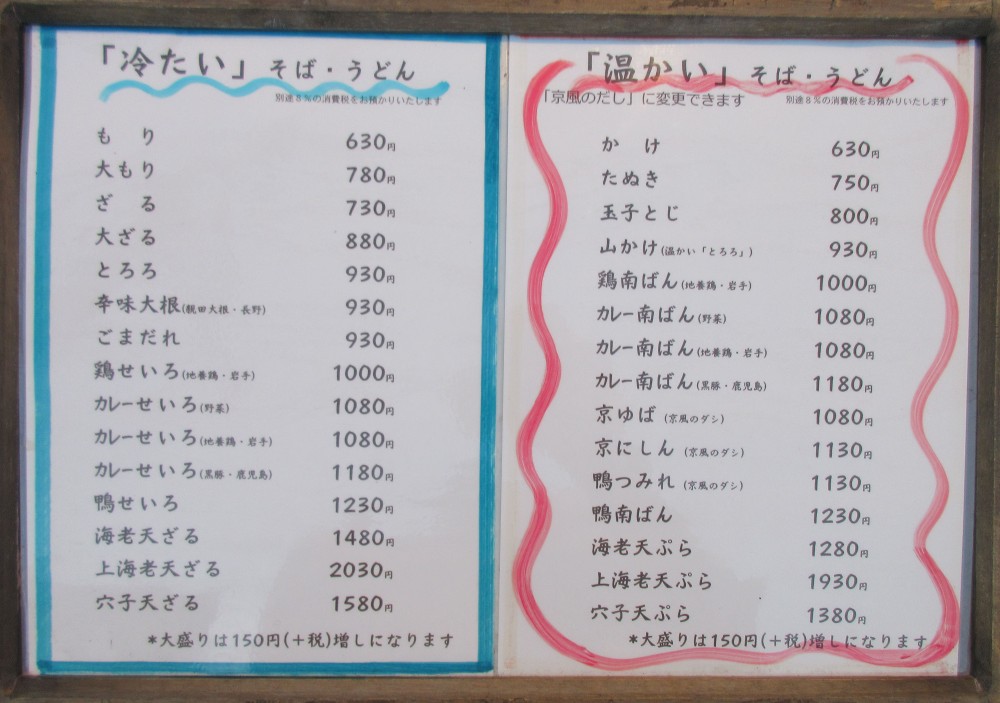 「冷たい」そば・うどん
別途8%の消費税をお預かりいたします
もり 630円
大もり 780円
ざる 730円
大ざる 880円
とろろ 930円
辛味大根(親田大根・長野) 930円
ごまだれ 930円
鶏せいろ(地養鶏・岩手) 1000円
カレーせいろ(野菜) 1080円
カレーせいろ(地養鶏・岩手) 1080円
カレーせいろ(黒豚・鹿児島) 1180円
鴨せいろ 1230円
海老天ざる 1480円
上海老天ざる 2030円
穴子天ざる 1580円
*大盛りは150円(+税)増しになります
「温かい」そば・うどん
「京風のだし」に変更できます 別途8%の消費税をお預かりいたします
かけ 630円
たぬき 750円
玉子とじ 800円
山かけ(温かい「とろろ」) 930円
鶏南ばん(地養鶏・岩手) 1000円
カレー南ばん(野菜) 1080円
カレー南ばん(地養鶏・岩手) 1080円
カレー南ばん(黒豚・鹿児島) 1180円
京ゆば(京風のダシ) 1080円
京にしん(京風のダシ) 1130円
鴨つみれ(京風のダシ) 1130円
鴨南ばん 1230円
海老天ぷら 1280円
上海老天ぷら 1930円
穴子天ぷら 1380円
*大盛りは150円(+税)増しになります